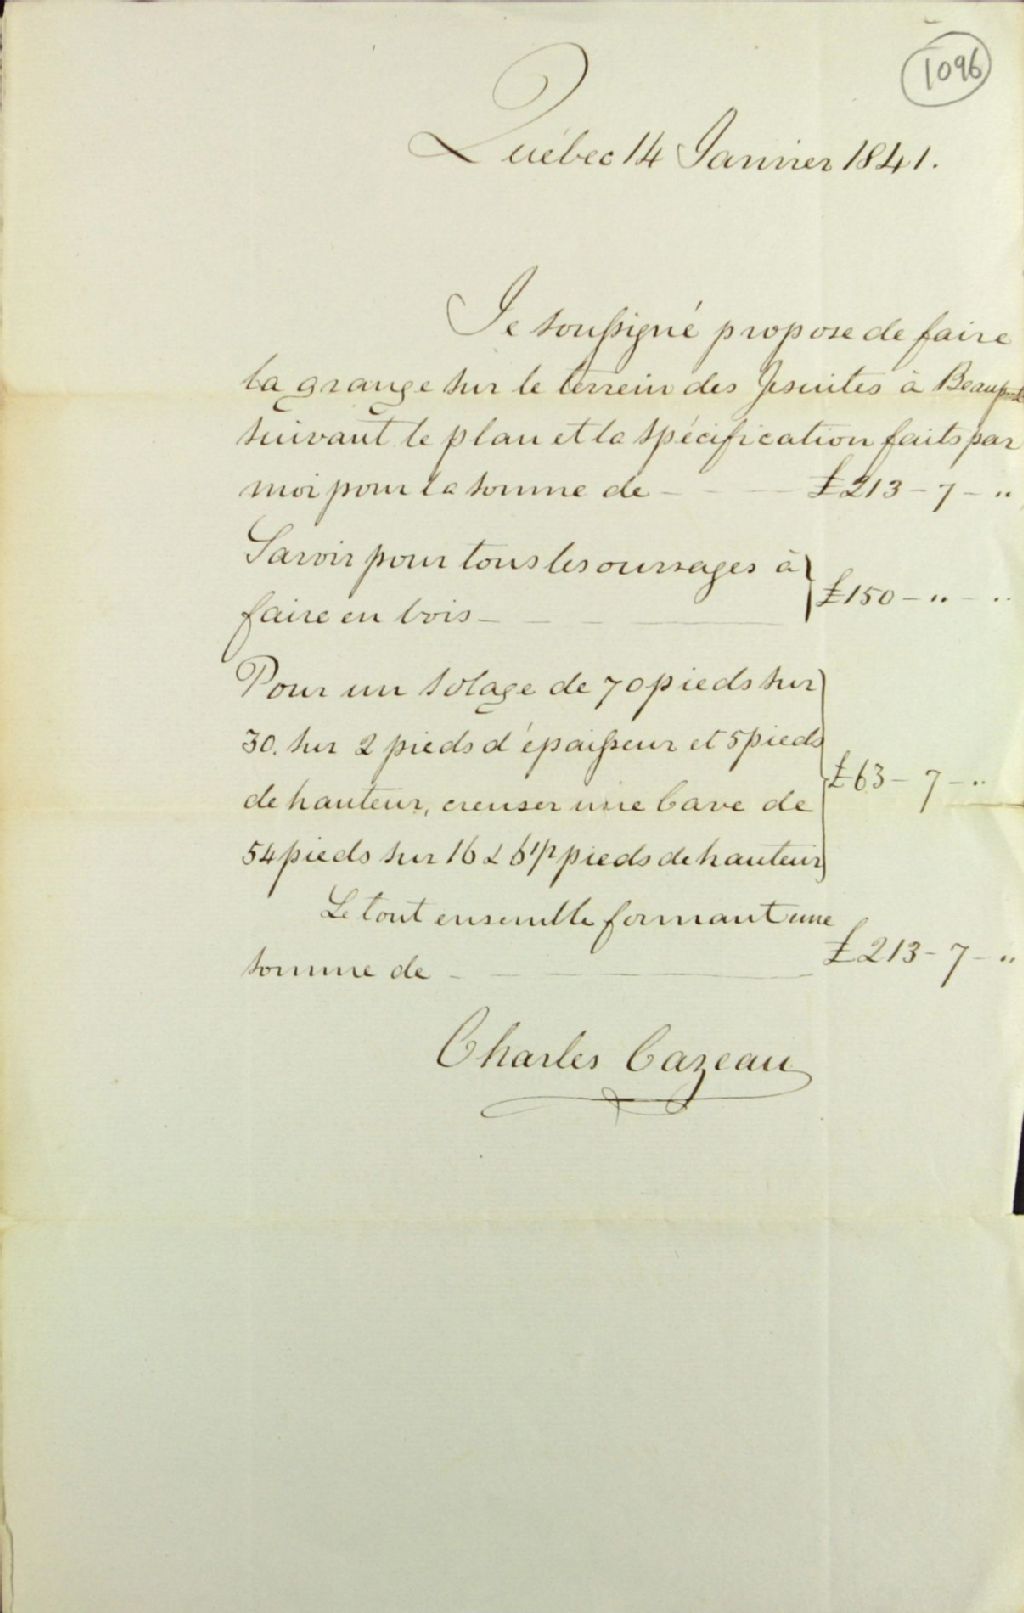 1096
Québec 14 Janvier 1841.
Je soussigné propose de faire
la grange sur le terrein des Jesuites à
suivant le plan et la spécification faits par
moi pour la somme de - - - £213 - 7 - "
Savoir pour tous les ouvrages à
faire en bois - - - £150 - " - "
Pour un solage de 70 pieds sur
30. sur 2 pieds d'épaisseur et 5 pieds
de hauteur, creuser une Cave de £63 - 7 - "
54 pieds sur 16 & 6 1/2 pieds de hauteur
Le tout ensemble formant une
somme de - £213 - 7 - "
Charles Cazeau